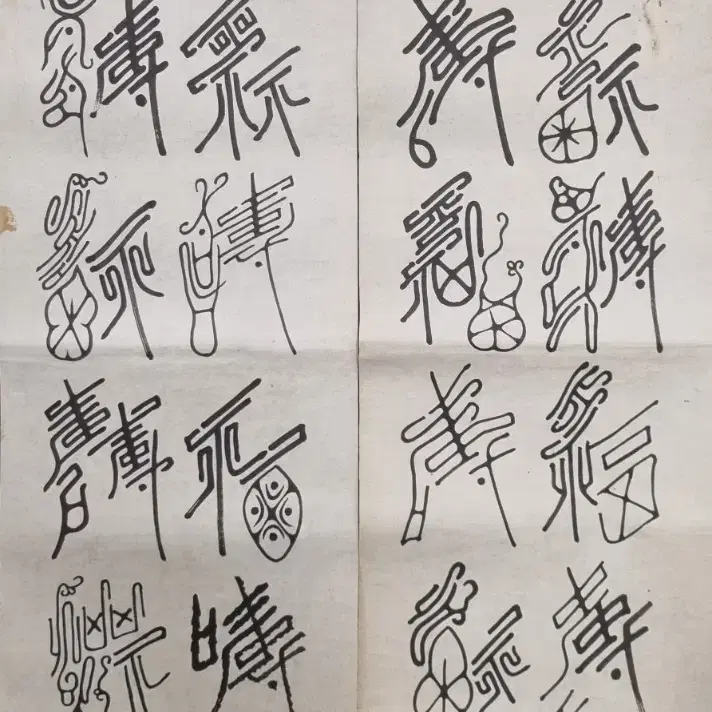 福壽福壽
壽福壽福
福壽福壽
壽福壽福